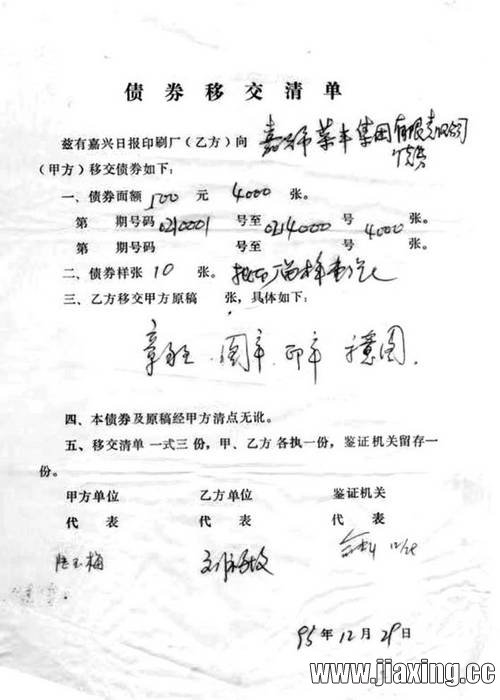 债券移交清单
兹有嘉兴日报印刷厂（乙方）向 嘉兴市 集团有限责任公司
（甲方）移交债券如下：
一、债券面额 500 元 4000 张。
第 期号码 0210001 号至 0214000 号 4000 张。
第 期号码 号至 号 张。
二、债券样张 10 张。
三、乙方移交甲方原稿 张，具体如下：
意图.
四、本债券及原稿经甲方清点无讹。
五、移交清单一式三份，甲、乙方各执一份，鉴证机关留存一
份。
甲方单位 乙方单位 鉴证机关
代 表 代 表 代 表
95年12月29日
www.jiaxing.cc